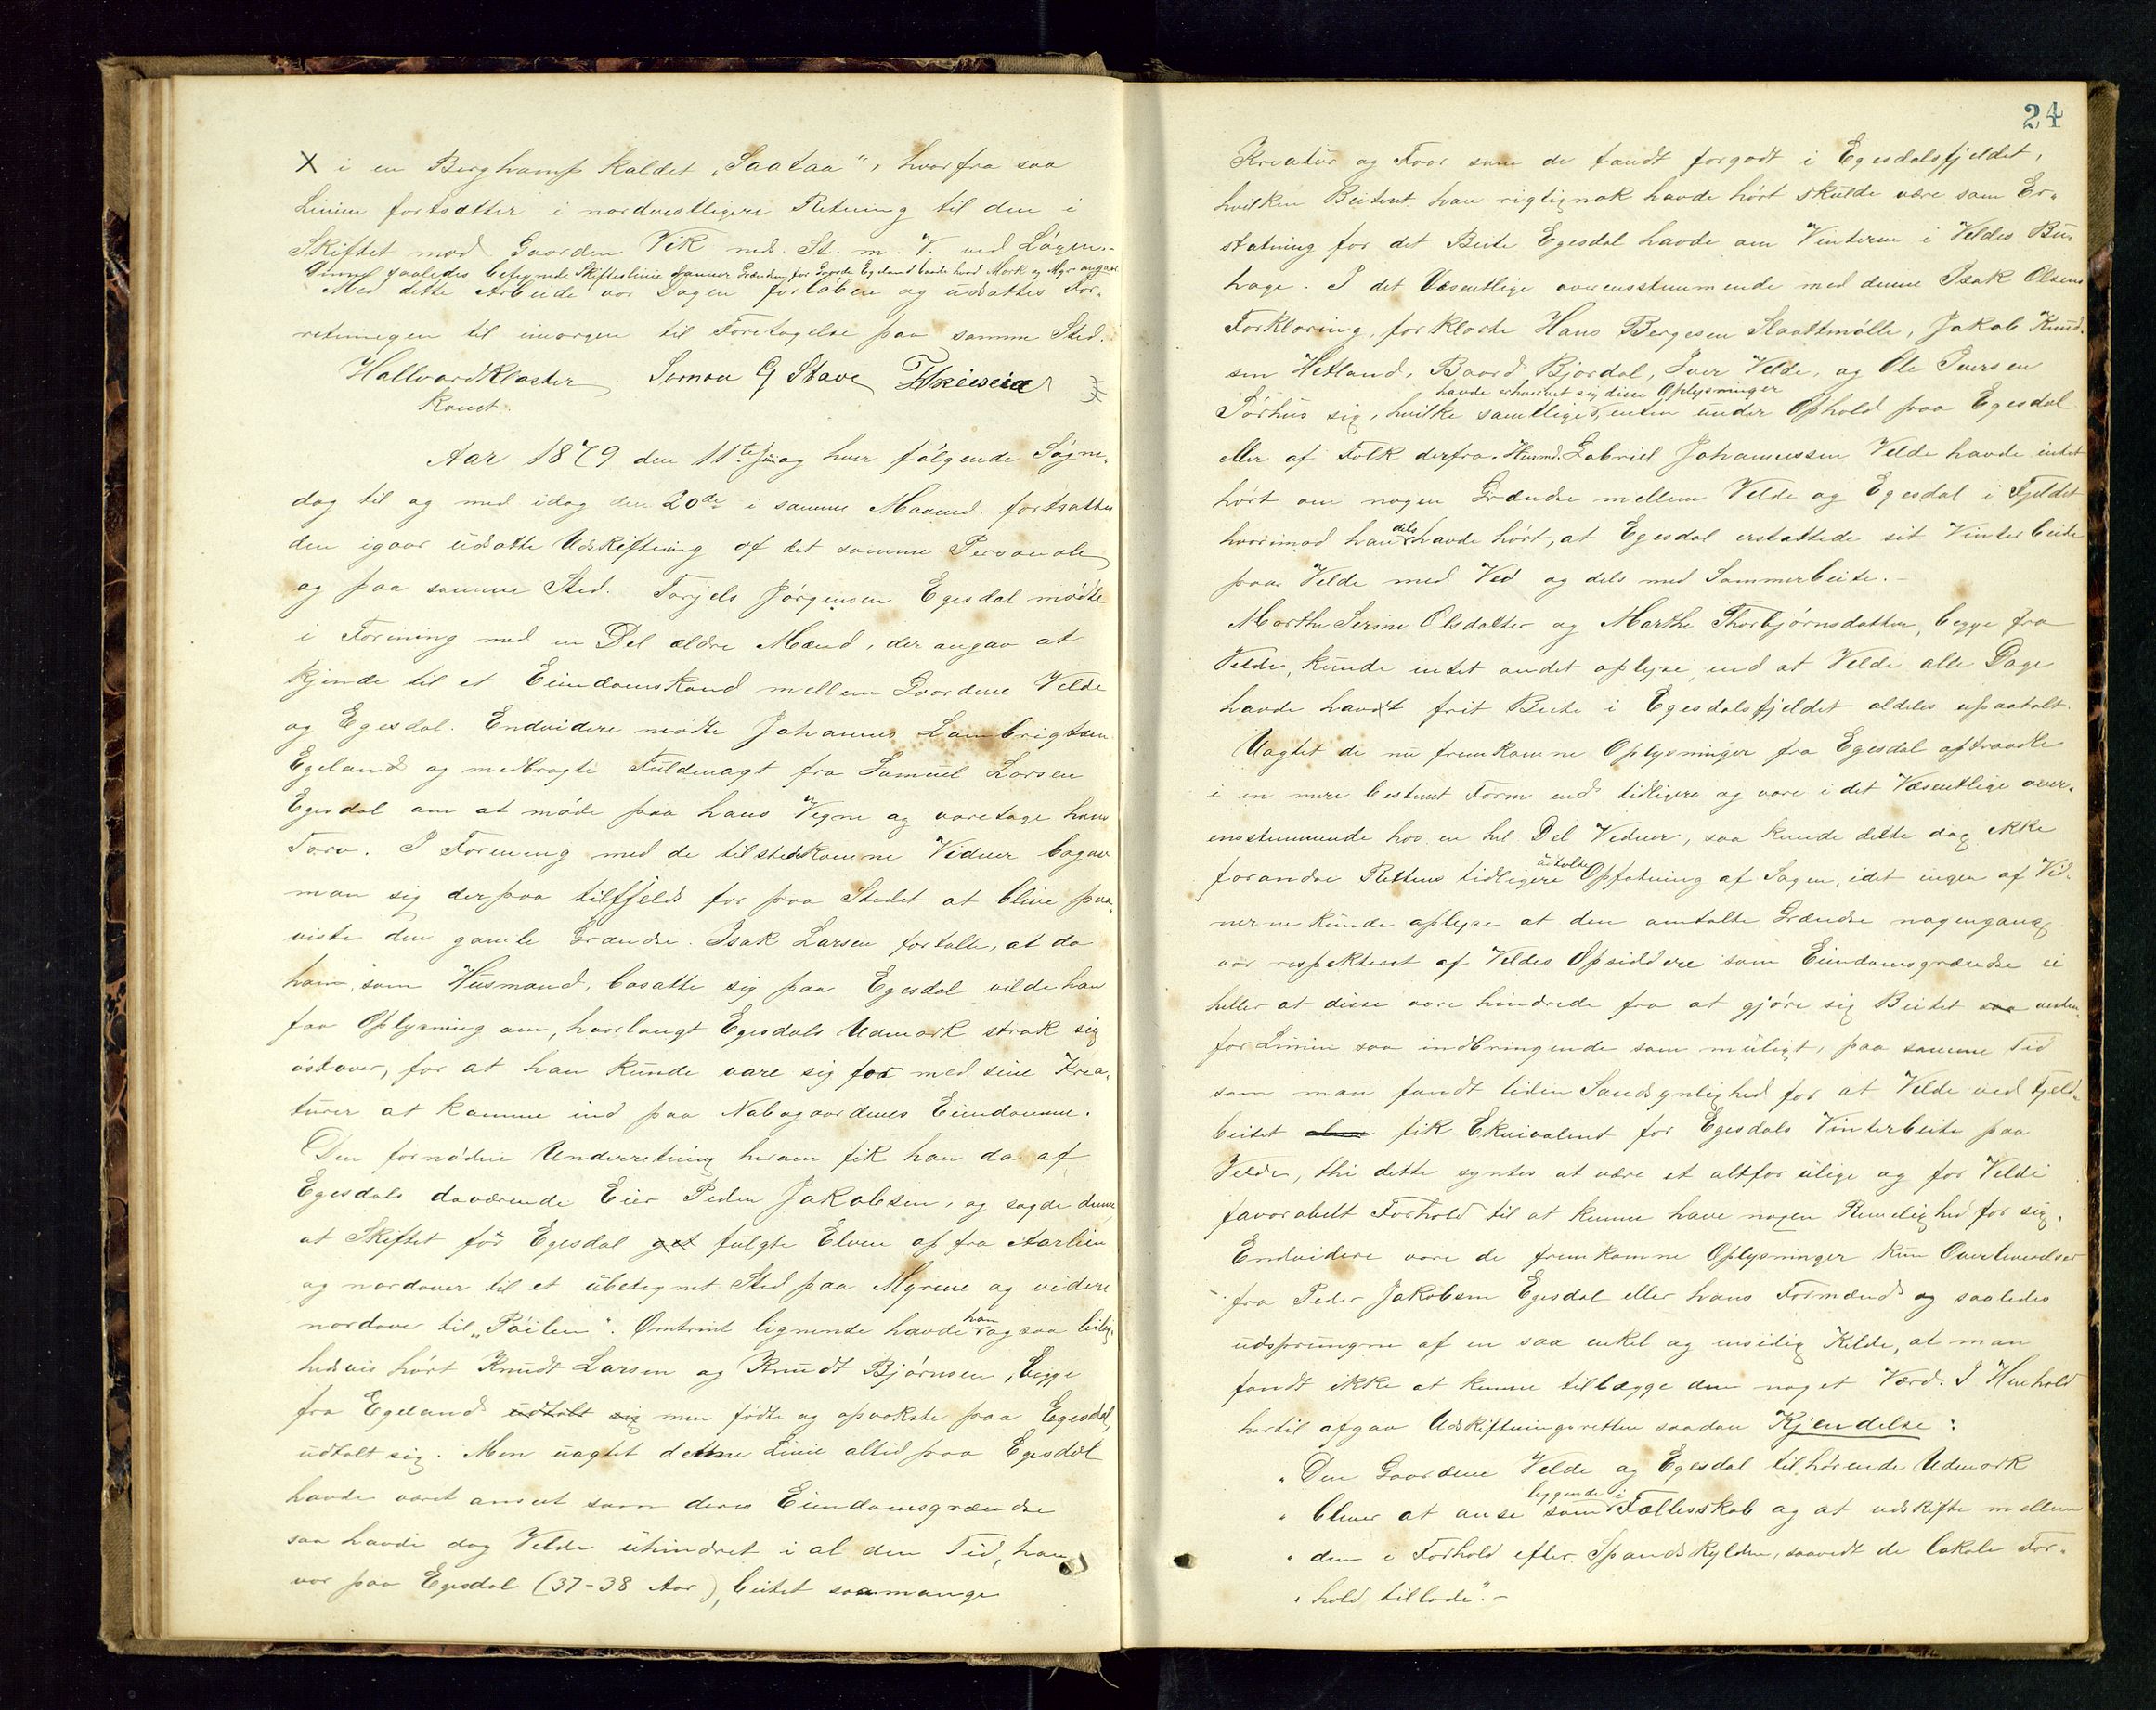 X i en Berghamp kaldet „Saataa", hvorfra saa
Linien fortsætter i nordvestligere Retning til den i
Skiftet mod Gaarden Vik neds. St. m. V. ved Lögen.-
Denne saaledes betegnede Skifteslinie danner Grændsen for Gjorde Egeland baade hvad Mark og Myr angaar
Med dette Arbeide var Dagen forløben og udsattes For-
retningen til imorgen til Foretagelse paa samme Sted.
Hallvard Kloster Somon G Stave
Konst.
Aar 1879 den 11te Juni og hver følgende Søgne-
dag til og med idag den 20de i samme Maaned fortsattes
den igaar udsatte Udskiftning af det samme Personale
og paa samme Sted. Torjels Jørgensen Egesdal mødte
i Forening med en Del ældre Mænd, der angav at
kjende til et Eiendomskand mellem Gaardene Velde
og Egesdal. Endvidere mødte Johannes Lambrigtsen
Egeland og medbragte Fuldmagt fra Samuel Larsen
Egesdal om at møde paa hans Vegne og varetage hans
Tarv. I Forening med de tilstedkomne Vidner begav
man sig derpaa tilfjelds for paa Stedet at blive paa-
viste den gamle Grændse. Isak Larsen fortalte, at da
han, som Husmand, bosatte sig paa Egesdal vilde han
faa Oplysning om, hvorlangt Egesdals Udmark strak sig
østover, for at han kunde vare sig for med sine Krea-
turer at komme ind paa Nabogaardenes Eiendomme.
Den fornødne Underretning herom fik han da af
Egesdals daværende Eier Peder Jakobsen, og sagde denne
at Skiftet for Egesdal fulgte Elven op fra Aarlien
og nordover til et ubetegnet Sted paa Myrene og videre
nordover til „Påilen". Omtrent lignende havde han ogsaa leilig-
hedsvis hørt Knudt Larsen og Knudt Bjørnsen, begge
fra Egeland udtalt sig men fødte og opvokste paa Egesdal,
udtalt sig. Men uagtet denne Linie altid paa Egesdal
havde været anseet som deres Eiendomsgrændse
saa havde dog Velde uhindret i al den Tid, han
var paa Egesdal (37-38 Aar), beitet saamange
24
Kreatur og Foer som de fandt forgodt i Egesdalsfjeldet,
hvilken Beiteret han rigtignok havde hørt skulde være som Er-
statning for det Beite Egesdal havde om Vinteren i Veldes Bu-
hage. I det Væsentlige overensstemmende med denne Isak Olsens
Forklaring, forklarte Hans Bergesen Slaattmølle, Jakob Knud-
sen Hetland, Baard Bjordal, Iver Velde, og Ole Iversen
havde erhvervet sig disse Oplysninger
Sørhus sig, hvilke samtlige, enten under Ophold paa Egesdal
eller af Folk derfra. Husmd. Gabriel Johannessen Velde havde intet
hørt om nogen Grændse mellem Velde og Egesdal i Fjeldet
hvorimod han dels havde hørt, at Egesdal erstattede sit Vinterbeite
paa Velde med Ved og dels med Sommerbeite.-
Marthe Serine Olsdatter og Marthe Thorbjørnsdatter, begge fra
Velde, kunde intet andet oplyse, end at Velde alle Dage
havde havt frit Beite i Egesdalsfjeldet aldeles upaatalt.
Uagtet de nu fremkomne Oplysninger fra Egesdal optraadte
i en mere bestemt Form end tidligere og vare i det Væsentlige over-
ensstemmende hos en hel Del Vidner, saa kunde dette dog ikke
forandre Rettens tidligere udtalte Opfatning af Sagen, idet ingen af Vid-
nerne kunde oplyse at den omtalte Grændse nogengang
var respekteret af Veldes Opsiddere som Eiendomsgrændse ei
heller at disse vare hindrede fra at gjøre sig Beitet saa vesten-
for Linien saa indbringende som muligt, paa samme Tid
som man fandt liden Sandsynlighed for at Velde ved Fjeld-
beitet fik Ekvivalent for Egesdals Vinterbeite paa
Velde, thi dette syntes at være et altfor ulige og for Velde
favorabelt Forhold til at kunne have nogen Rimelighed for sig.
Endvidere vare de fremkomne Oplysninger kun Overleverelser
fra Peder Jakobsen Egesdal eller hans Formænd og saaledes
udsprungne af en saa enkel og ensidig Kilde, at man
fandt ikke at kunne tillægge dem noget Værd. I Henhold
hertil afgav Udskiftningsretten saadan Kjendelse:
„Den Gaardene Velde og Egesdal tilhørende Udmark
„bliver at anse som liggende i Fællesskab og at udskifte mellem
„dem i Forhold efter Spandskylden, saavidt de lokale For-
„hold tillade".-